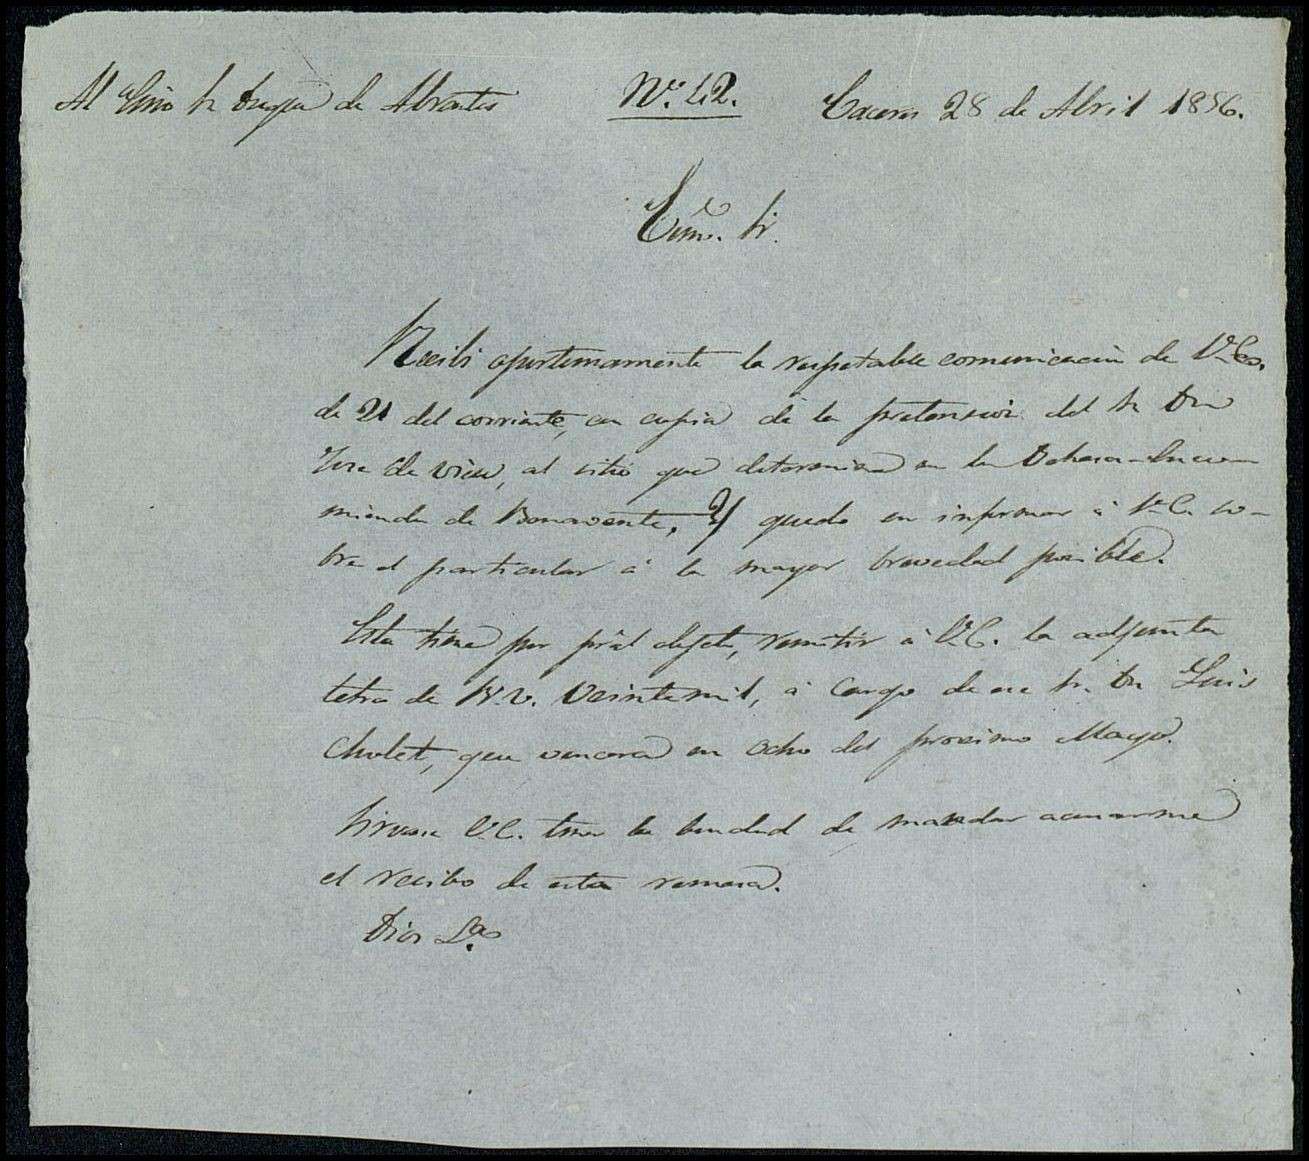 Al Exmo Sr Duque de Abrantes
Nº 42.
Caceres 28 de Abril 1856.
Exmo. Sr.
Recibi oportunamente la respetable comunicacion de V.E.
de 21 del corriente, con copia de la pretension del Sr Dn
Jose de, al sitio que determina en la Dehesa-Enco-
mienda de Benavente, y quedo en informar á V.E. so-
bre el particular á la mayor brevedad posible.
Esta tiene por pral objeto, remitir á V.E. la adjunta
letra de R.v. Veinte mil, á cargo de ese Sr. Dn Luis
Cholet, que vencerá en ocho del proximo Mayo.
Sirvase V.E. tener la bondad de mandar acusarme
el recibo de esta remesa.
Dios &a